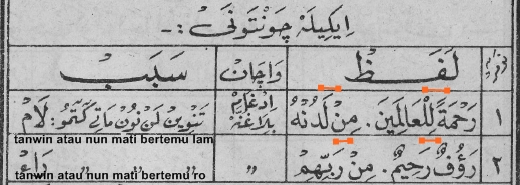 اِيْكِيلَهْ چَوْنْتَوْنَىْ :-
لَفَظْ وَاچَانْ سَبَبْ
١ رَحْمَةً لِلْعَالَمِيْنَ. مِنْ لَدُنْهُ اِدْغَامْ بِلَاغُنَّهْ تَنْوِيْن لَنْ نُوْن مَاتِيْ كَتَمُوْ: لَامْ
tanwin atau nun mati bertemu lam
٢ رَؤُفٌ رَحِيْمٌ. مِنْ رَبِّهِمْ " " " " " رَاءْ
tanwin atau nun mati bertemu ro